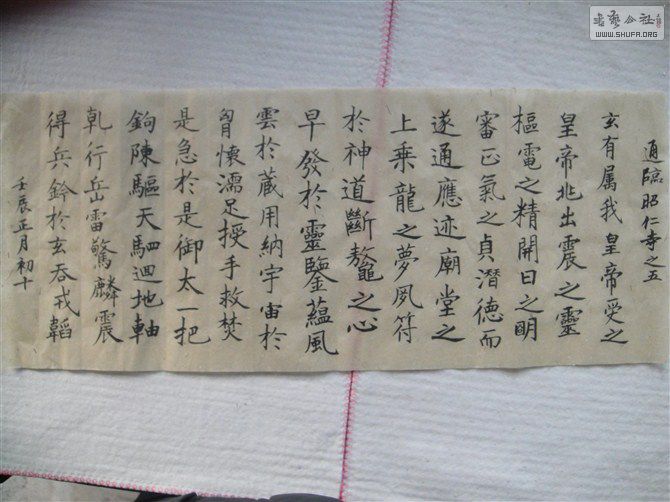 通臨昭仁寺之五
玄有属我皇帝受之
皇帝兆出震之靈
摳電之精開日之明
審正氣之貞潛德而
遂通應迹廟堂之
上乗龍之夢夙符
於神道斷鼇之心
早發於靈鑒蘊風
雲於蔵用納宇宙於
胷懷濡足授手救焚
是急於是御太一把
鉤陳驅天駟迴地軸
乹行岳雷驚麟震
得兵鈐於玄吞戎韜
壬辰正月初十
书艺公社
WWW.SHUFA.ORG